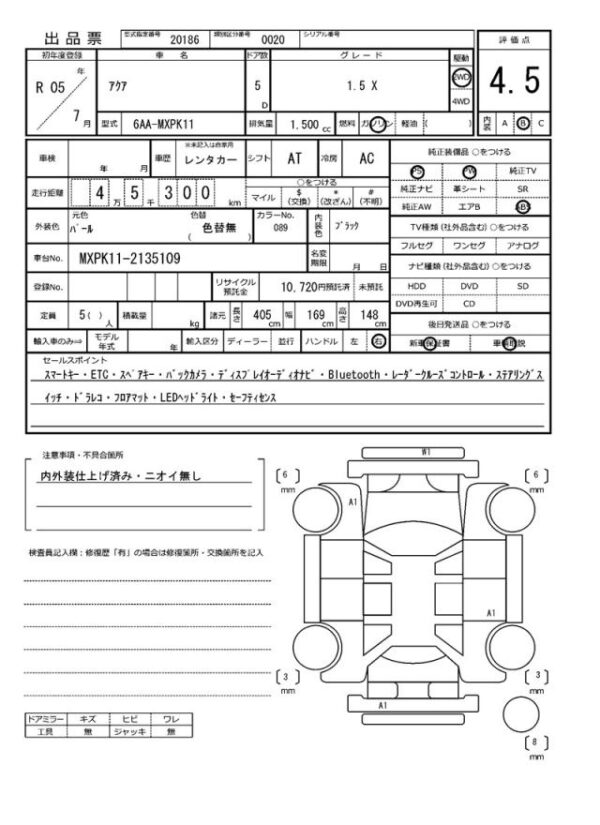 出品票 型式指定番号 20186 類別区分番号 0020 シリアル番号
評価点
初年度登録 車名 ドア数 グレード 駆動
R 05 年 7 月 アクア 5 D 1.5 X 2WD 4WD
4.5
型式 6AA-MXPK11 排気量 1,500 cc 燃料 ガソリン 軽油 ( ) 内装 A B C
車検 年 月 車歴 ※未記入は自家用 レンタカー シフト AT 冷房 AC
純正装備品 ○をつける
PS PW 純正TV
走行距離 4 万 5 千 300 km ○をつける マイル $ (交換) * (改ざん) # (不明)
純正ナビ 革シート SR
純正AW エアB ABS
外装色 元色 パール 色替 色替無 ( ) カラーNo. 089 内装色 ブラック
TV種類 (社外品含む) ○をつける
フルセグ ワンセグ アナログ
車台No. MXPK11-2135109 名変期限 月 日
ナビ種類 (社外品含む) ○をつける
登録No. リサイクル預託金 10,720円預託済 未預託
HDD DVD SD
DVD再生可 CD
定員 5 ( ) 人 積載量 kg 諸元 長さ 405 cm 幅 169 cm 高さ 148 cm
後日発送品 ○をつける
輸入車のみ⇒ モデル年式 年 輸入区分 ディーラー 並行 ハンドル 左 右
新車保証書 車輌取説
セールスポイント
スマートキー・ETC・スペアキー・バックカメラ・ディスプレイオーディオナビ・Bluetooth・レーダークルーズコントロール・ステアリングス
イッチ・ドラレコ・フロアマット・LEDヘッドライト・セーフティセンス
注意事項・不具合箇所
内外装仕上げ済み・ニオイ無し
検査員記入欄：修復歴「有」の場合は修復箇所・交換箇所を記入
W1
6 mm
6 mm
A1
A1
3 mm
3 mm
A1
8 mm
ドアミラー キズ ヒビ ワレ
工具 無 ジャッキ 無